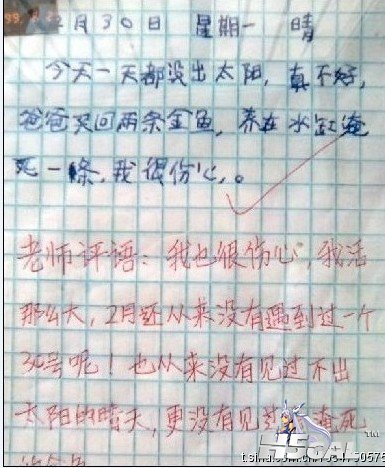 2月30日 星期一 晴
今天一天都没出太阳,真不好,
爸爸买回两条金鱼,养在水缸淹
死一條,我很伤心,。
老师评语:我也很伤心,我活
那么大,2月还从来没有遇到过一个
30号呢!也从来没有见过不出
太阳的晴天,更没有见过 淹死